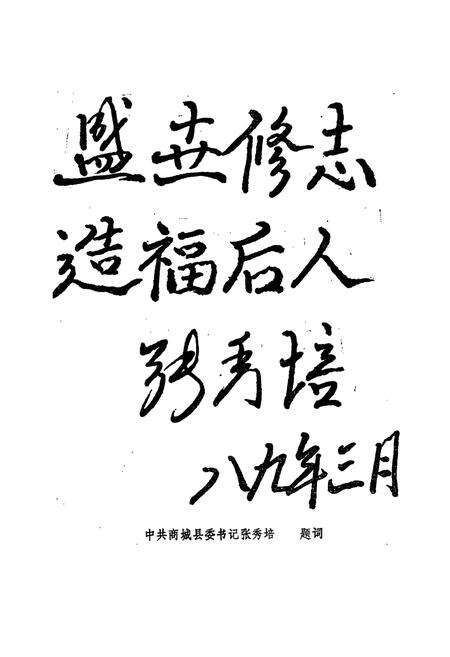 盛世修志
造福后人
张秀培
八九年三月
中共商城县委书记张秀培 题词